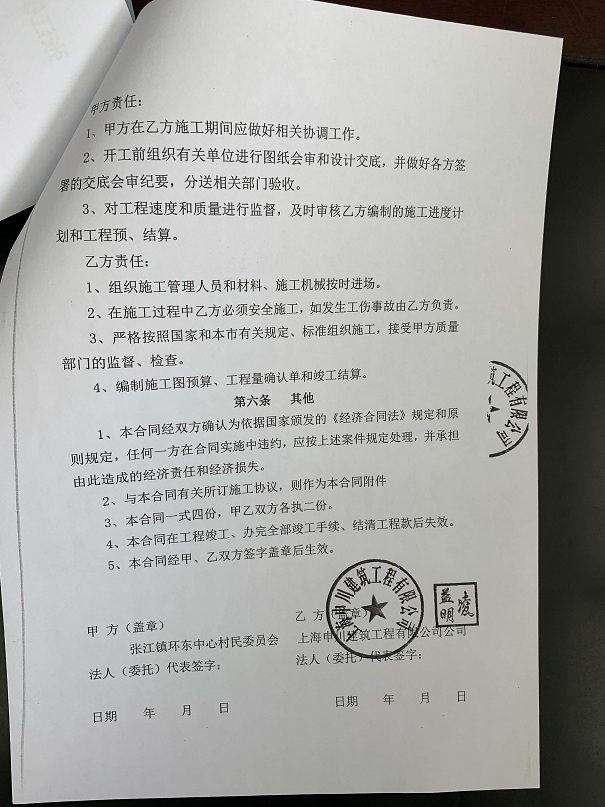 甲方责任：
1、甲方在乙方施工期间应做好相关协调工作。
2、开工前组织有关单位进行图纸会审和设计交底，并做好各方签
署的交底会审纪要，分送相关部门验收。
3、对工程速度和质量进行监督，及时审核乙方编制的施工进度计
划和工程预、结算。
乙方责任：
1、组织施工管理人员和材料、施工机械按时进场。
2、在施工过程中乙方必须安全施工，如发生工伤事故由乙方负责。
3、严格按照国家和本市有关规定、标准组织施工，接受甲方质量
部门的监督、检查。
4、编制施工图预算、工程量确认单和竣工结算。
第六条 其他
1、本合同经双方确认为依据国家颁发的《经济合同法》规定和原
则规定，任何一方在合同实施中违约，应按上述案件规定处理，并承担
由此造成的经济责任和经济损失。
2、与本合同有关所订施工协议，则作为本合同附件
3、本合同一式四份，甲乙双方各执二份。
4、本合同在工程竣工、办完全部竣工手续、结清工程款后失效。
5、本合同经甲、乙双方签字盖章后生效。
筑工程有限公司
上海申川建筑工程有限公司
凌益明
甲 方（盖章）
张江镇环东中心村民委员会
法人（委托）代表签字：
日期 年 月 日
乙 方（盖章）
上海申川建筑工程有限公司公司
法人（委托）代表签字：
日期 年 月 日